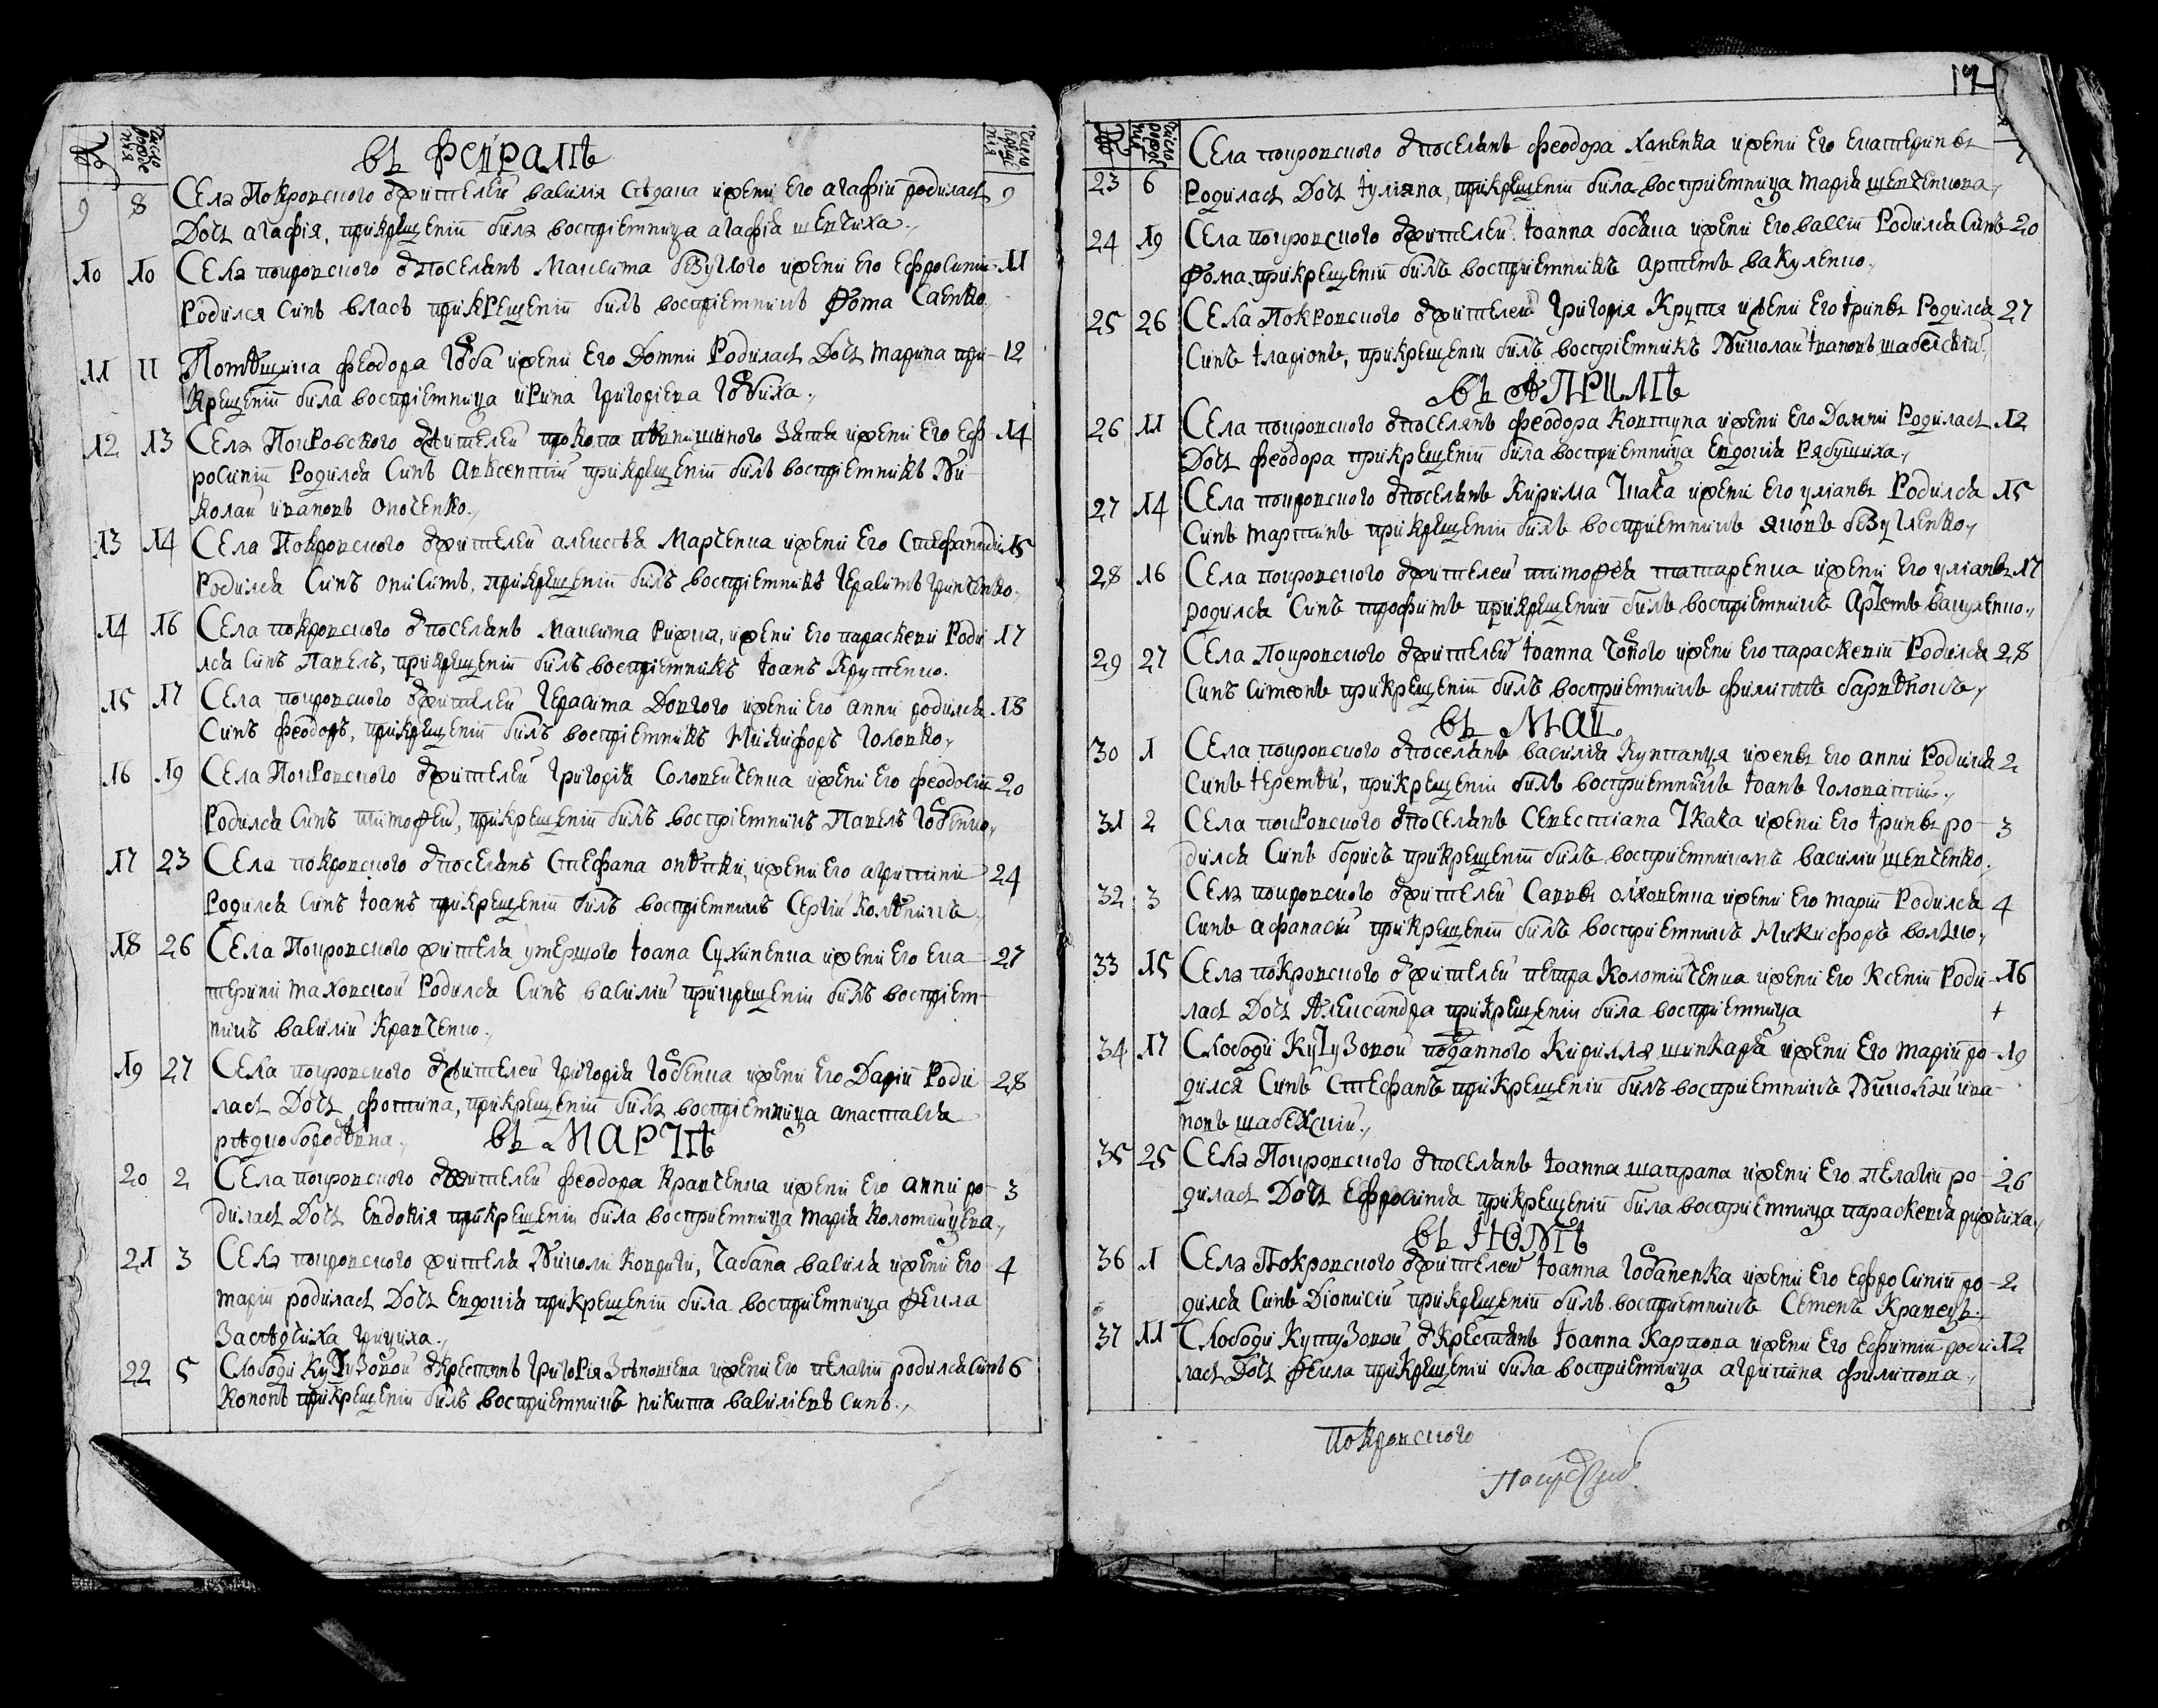 въ февралѣ
9 8 Села Покровского Ѿжителей василія Сѣдача ижени Его агафій родиласъ 9
Дочъ агафія, прикрещеніи била воспріемница агафія шевчиха.
10 10 Села покровского Ѿпоселянъ Максима безуглого ижени Его Ефросиніи 11
Родился Синъ власъ прикрещеніи билъ воспріемникъ Фома Саенко.
11 11 Помѣщика феодора ижени Его Домни Родиласъ Дочъ марина при- 12
крещеніи била воспріемница ирина григоріева
12 13 Села Покровского Ѿжителей прокопа Зятя ижени Его Еф- 14
росиніи Родился Синъ авксентій прикрещеніи билъ воспріемникъ Ни-
колай ивановъ
13 14 Села Покровского Ѿжителей алексѣя Марченка ижени Его Стефаниди 15
Родился Синъ онисимъ, прикрещеніи билъ воспріемникъ Герасимъ гринченко.
14 16 Села покровского Ѿпоселянъ Максима рижка, ижени Его параскеви Роди- 17
лся Синъ Павелъ, прикрещеніи билъ воспріемникъ Іоанъ Крутенко.
15 17 Села покровского Ѿжителей Герасима Довгого ижени Его анни родился 18
Синъ феодоръ, прикрещеніи билъ воспріемникъ Никифоръ Головко.
16 19 Села Покровского Ѿжителей Григорія Соловейченка ижени Его феодосіи 20
Родился Синъ тимофей, прикрещеніи билъ воспріемникъ Павелъ
17 23 Села покровского Ѿпоселянъ Стефана ижени Его агрипини 24
Родился Синъ Іоанъ прикрещеніи билъ воспріемникъ Сергій
18 26 Села Покровского жителя умершого Іоана Сухиненка ижени Его Ека- 27
терини маховской Родился Синъ василій прикрещеніи билъ воспріем-
никъ василій Кравченко.
19 27 Села покровского Ѿжителей григорія ижени Его Даріи Роди- 28
ласъ Дочъ фотина, прикрещеніи била воспріемница анастасія
въ МАРТѢ
20 2 Села покровского Ѿжителей феодора Кравченка ижени Его анни ро- 3
диласъ Дочъ Евдокія прикрещеніи била воспріемница марія коломийцева.
21 3 Села покровского жителя Николи Ковриги, Чабана василя ижени Его 4
маріи родиласъ Дочъ Евдокія прикрещеніи била воспріемница Фекла
грициха.
22 5 Слободи Кутузовой Ѿкрестянъ григорія ижени Его пелагіи родился Синъ 6
Кононъ прикрещеніи билъ воспріемникъ никита василіевъ Синъ.
Села покровского Ѿпоселянъ феодора ханенка ижени Его Екатерини
23 6 Родиласъ Дочъ іуліяна, прикрещеніи била воспріемница марія шевченкова.
24 19 Села покровского Ѿжителей Іоанна босака ижени Его Родился Синъ 20
Фома прикрещеніи билъ воспріемникъ артемъ вакуленко.
25 26 Села Покровского Ѿжителей Григорія Крутя ижени Его Ірини Родился 27
Синъ Іларіонъ, прикрещеніи билъ воспріемникъ Николай Івановъ шабелскій.
въ АПРИЛѢ
26 11 Села покровского Ѿпоселянъ феодора Ковтуна ижени Его Домни Родиласъ 12
Дочъ феодора прикрещеніи била воспріемница Евдокія Рябушиха.
27 14 Села покровского Ѿпоселянъ Кирила Ткача ижени Его уліани Родился 15
Синъ мартинъ прикрещеніи билъ воспріемникъ яковъ безугленко.
28 16 Села покровского Ѿжителей тимофея татаренка ижени Его уліани 17
родился Синъ трофимъ прикрещеніи билъ воспріемникъ Артемъ вакуленко.
29 27 Села Покровского Ѿжителей Іоанна ижени Его параскевіи Родился 28
Синъ Симеонъ прикрещеніи билъ воспріемникъ филиппъ
въ МАІ.
30 1 Села покровского Ѿпоселянъ василія Купанця ижени Его анни Родился 2
Синъ Іеремѣй, прикрещеніи билъ воспріемникъ Іоанъ Головатий.
31 2 Села покровского Ѿпоселянъ Севестіана Ткача ижени Его Ірини ро- 3
дился Синъ борисъ прикрещеніи билъ воспріемникомъ василій шевченко.
32 3 Села покровского Ѿжителей Савви ижени Его маріи Родился 4
Синъ афанасій прикрещеніи билъ воспріемникъ Никифоръ
33 15 Села покровского Ѿжителей петра Коломийченка ижени Его Ксеніи Роди- 16
ласъ Дочъ Александра прикрещеніи била воспріемница +
34 17 Слободи Кутузовой подданного Кирилля шинкаря ижени Его маріи ро- 19
дился Синъ Стефанъ прикрещеніи билъ воспріемникъ Николай ива-
новъ шабелскій.
35 25 Села Покровского Ѿпоселянъ Іоанна шапрана ижени Его пелагіи ро- 26
диласъ Дочъ Ефросинія прикрещеніи била воспріемница параскевія рижчиха.
въ ІЮНѢ
36 1 Села Покровского Ѿжителей Іоанна ижени Его Ефросиніи ро- 2
дился Синъ Діонисій прикрещеніи билъ воспріемникъ Семенъ Кравецъ.
37 11 Слободи Кутузовой Ѿкрестянъ Іоанна Карпова ижени Его Ефиміи роди- 12
ласъ Дочъ Фекла прикрещеніи била воспріемница агрипина филипова.
Покровского